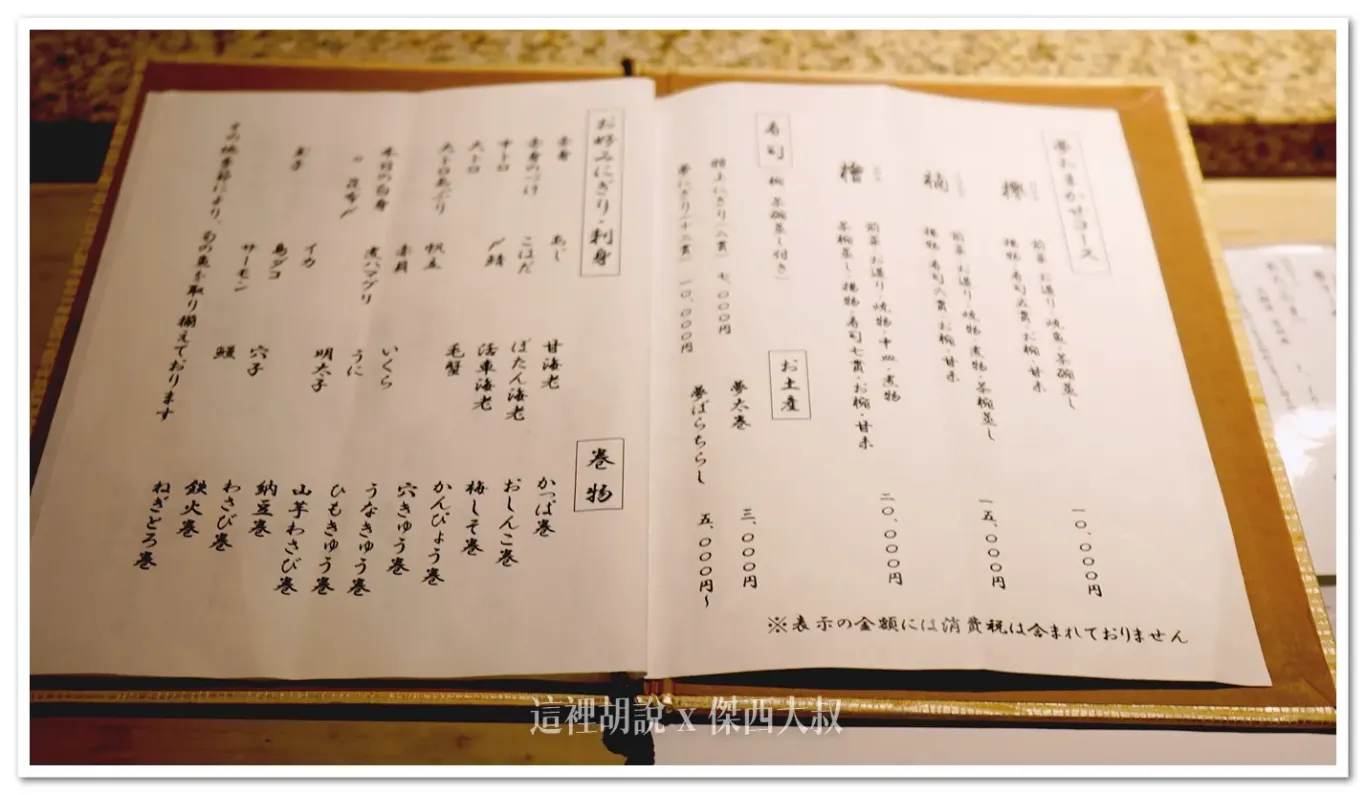 夢おまかせコース
欅
前菜・お造り・焼魚・茶碗蒸し
揚物・寿司五貫・お椀・甘味
一〇、〇〇〇円
前菜・お造り・焼物・煮物・茶椀蒸し
揚物・寿司六貫・お椀・甘味
一五、〇〇〇円
檜
前菜・お造り・焼物・中皿・煮物
茶椀蒸し・揚物・寿司七貫・お椀・甘味
二〇、〇〇〇円
寿司
(椀・茶碗蒸し付き)
特上にぎり(八貫) 七、〇〇〇円
夢にぎり(十二貫) 一〇、〇〇〇円
お土産
夢太巻 三、〇〇〇円
夢ばらちらし 五、〇〇〇円~
※表示の金額には消費税は含まれておりません
お好みにぎり・刺身
赤身
赤身のづけ
中トロ
大トロ
大トロあぶり
本日の白身
〃 昆布〆
玉子
あじ
こはだ
〆鯖
帆立
赤貝
煮ハマグリ
イカ
島ダコ
サーモン
甘海老
ぼたん海老
活車海老
毛蟹
いくら
うに
明太子
穴子
鰻
その他季節により、旬の魚を取り揃えております
巻物
かっぱ巻
おしんこ巻
梅しそ巻
かんぴょう巻
穴きゅう巻
うなきゅう巻
ひもきゅう巻
山芋わさび巻
納豆巻
わさび巻
鉄火巻
ねぎとろ巻
這裡胡說 x 傑西大叔